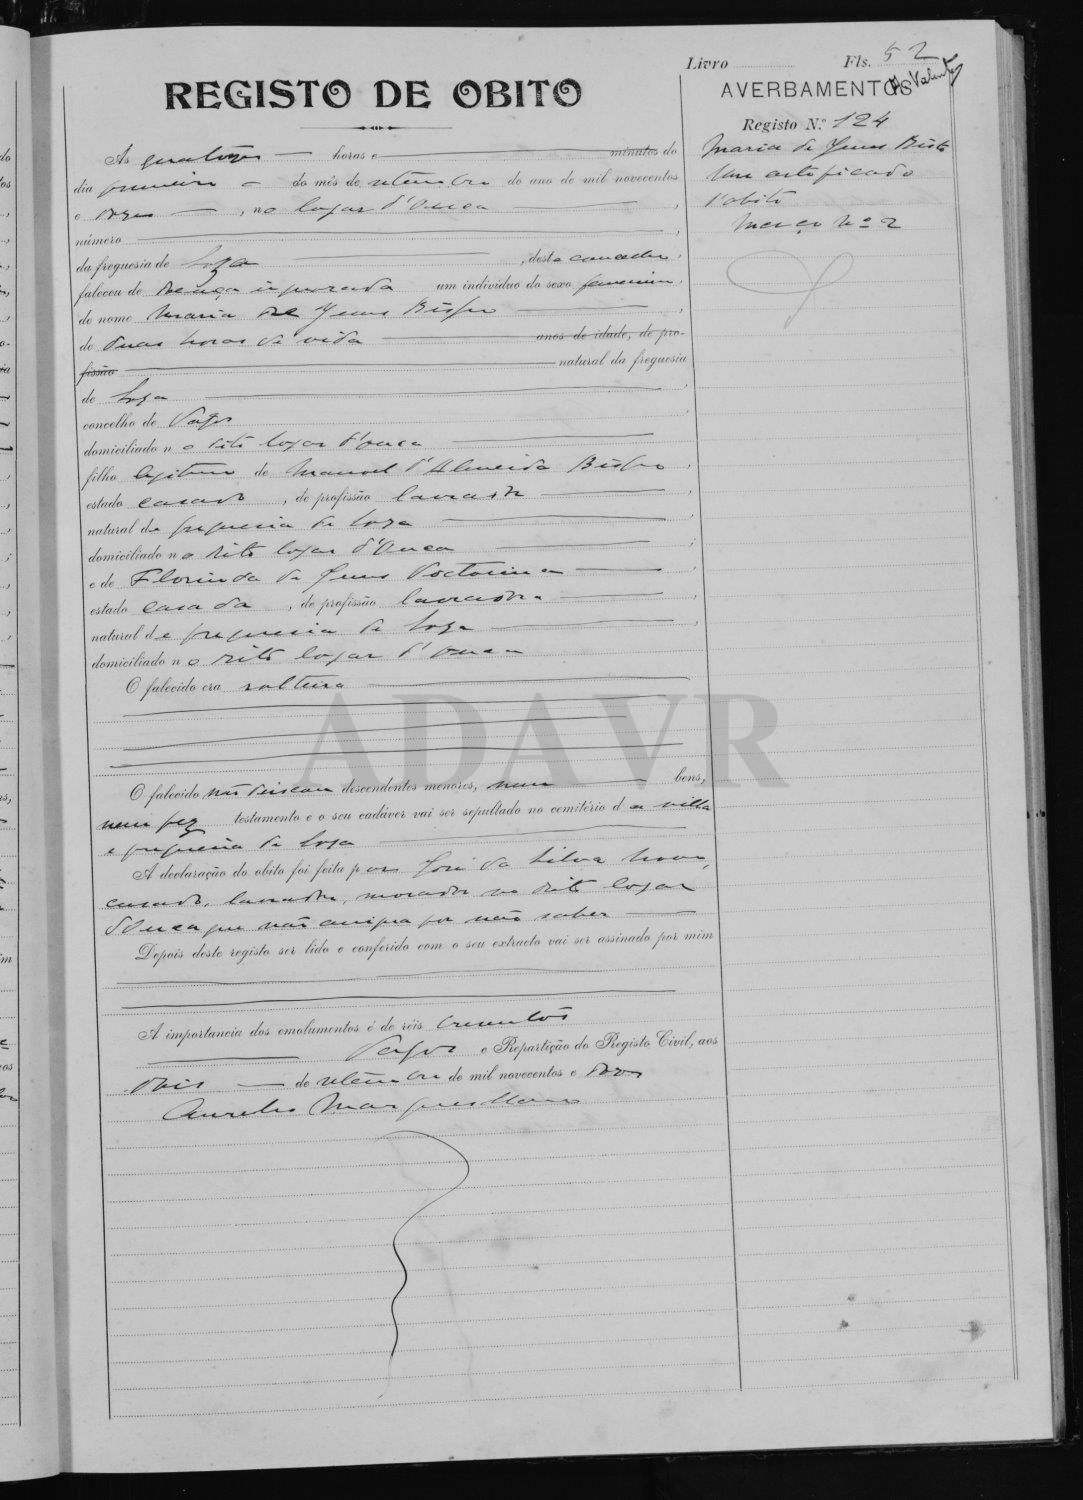 Livro Fls. 52
REGISTO DE OBITO
AVERBAMENTOS
Registo N.º 124
Maria de Jesus Bispo
Um certificado
d'obito
Março Nº 2
As quatorze horas e minutos do
dia primeiro do mês de setembro do ano de mil novecentos
e doze, no logar d'Ouca,
número
da freguesia de Soza, deste concelho,
faleceu de doença ignorada um individuo do sexo femenino,
de nome Maria de Jesus Bispo
de duas horas de vida anos de idade, de pro-
fissão natural da freguesia
de Soza
concelho de Vagos
domiciliado no dito logar d'Ouca
filho legitimo de Manoel d'Almeida Bispo,
estado casado, de profissão lavrador
natural da freguesia de Soza
domiciliado no dito logar d'Ouca;
e de Florinda de Jesus
estado casada, de profissão lavradora
natural da freguesia de Soza,
domiciliado no dito logar d'Ouca
O falecido era solteira
O falecido não deixou descendentes menores, nem bens,
nem fez testamento e o seu cadáver vai ser sepultado no cemitério da villa
e freguesia de Soza
A declaração do obito foi feita por José da Silva
casado, lavrador, morador no dito logar
d'Ouca que não assigna por não saber
Depois deste registo ser lido e conferido com o seu extracto vai ser assinado por mim
A importancia dos emolumentos é de réis
Vagos e Repartição do Registo Civil, aos
dois de setembro de mil novecentos e doze
Aurelio Marques Mano
ADAVR